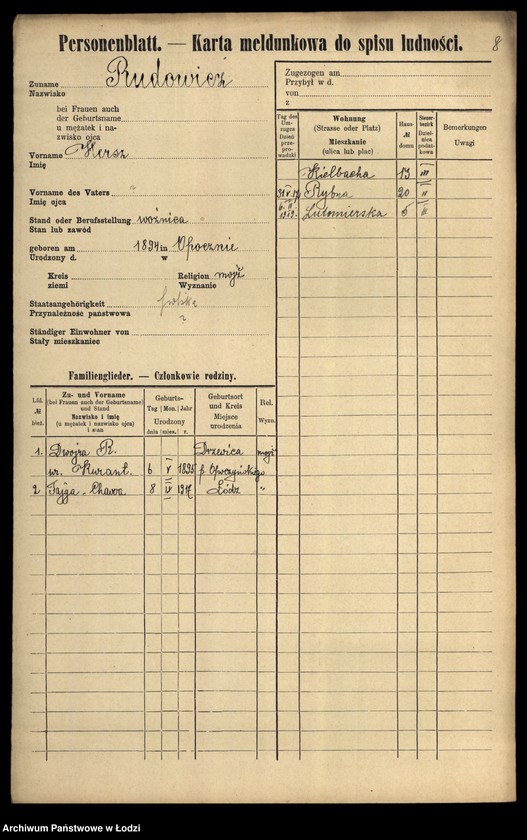 Personenblatt. — Karta meldunkowa do spisu ludności.
8
Zuname Rudowicz
Nazwisko
bei Frauen auch
der Geburtsname
u mężatek i na-
zwisko ojca
Vorname Hersz
Imię
Vorname des Vaters ?
Imię ojca
Stand oder Berufsstellung woźnica
Stan lub zawód
geboren am 1894 in Opocznie
Urodzony d. w
Kreis Religion mojż
ziemi Wyznanie
Staatsangehörigkeit polska
Przynależność państwowa ?
Ständiger Einwohner von
Stały mieszkaniec
Zugezogen am
Przybył w d.
von
z
Tag des Um-zuges Dzień prze-pro-wadzki
Wohnung (Strasse oder Platz) Mieszkanie (ulica lub plac)
Haus-№ domu
Steuer-bezirk Dziel-nica podat-kowa
Bemerkungen Uwagi
Kielbacha 13 III
Rybna 20 "
Lutomierska 5 III
Familienglieder. — Członkowie rodziny.
Lfd. № bież.
Zu- und Vorname (bei Frauen auch der Geburtsname) und Stand Nazwisko i imię (z mężatek i nazwisko ojca) i stan
Geburts- Tag Mon. Jahr Urodzony dnia mies. r.
Geburtsort und Kreis Miejsce urodzenia
Rel. Wyzn.
1. Dwojra R. Drzewica mojż
ur. Kurant. 6 V 1895 p. Opoczyńskiego
2 Fajga-Chawa 8 1917 Łódź "
Archiwum Państwowe w Łodzi